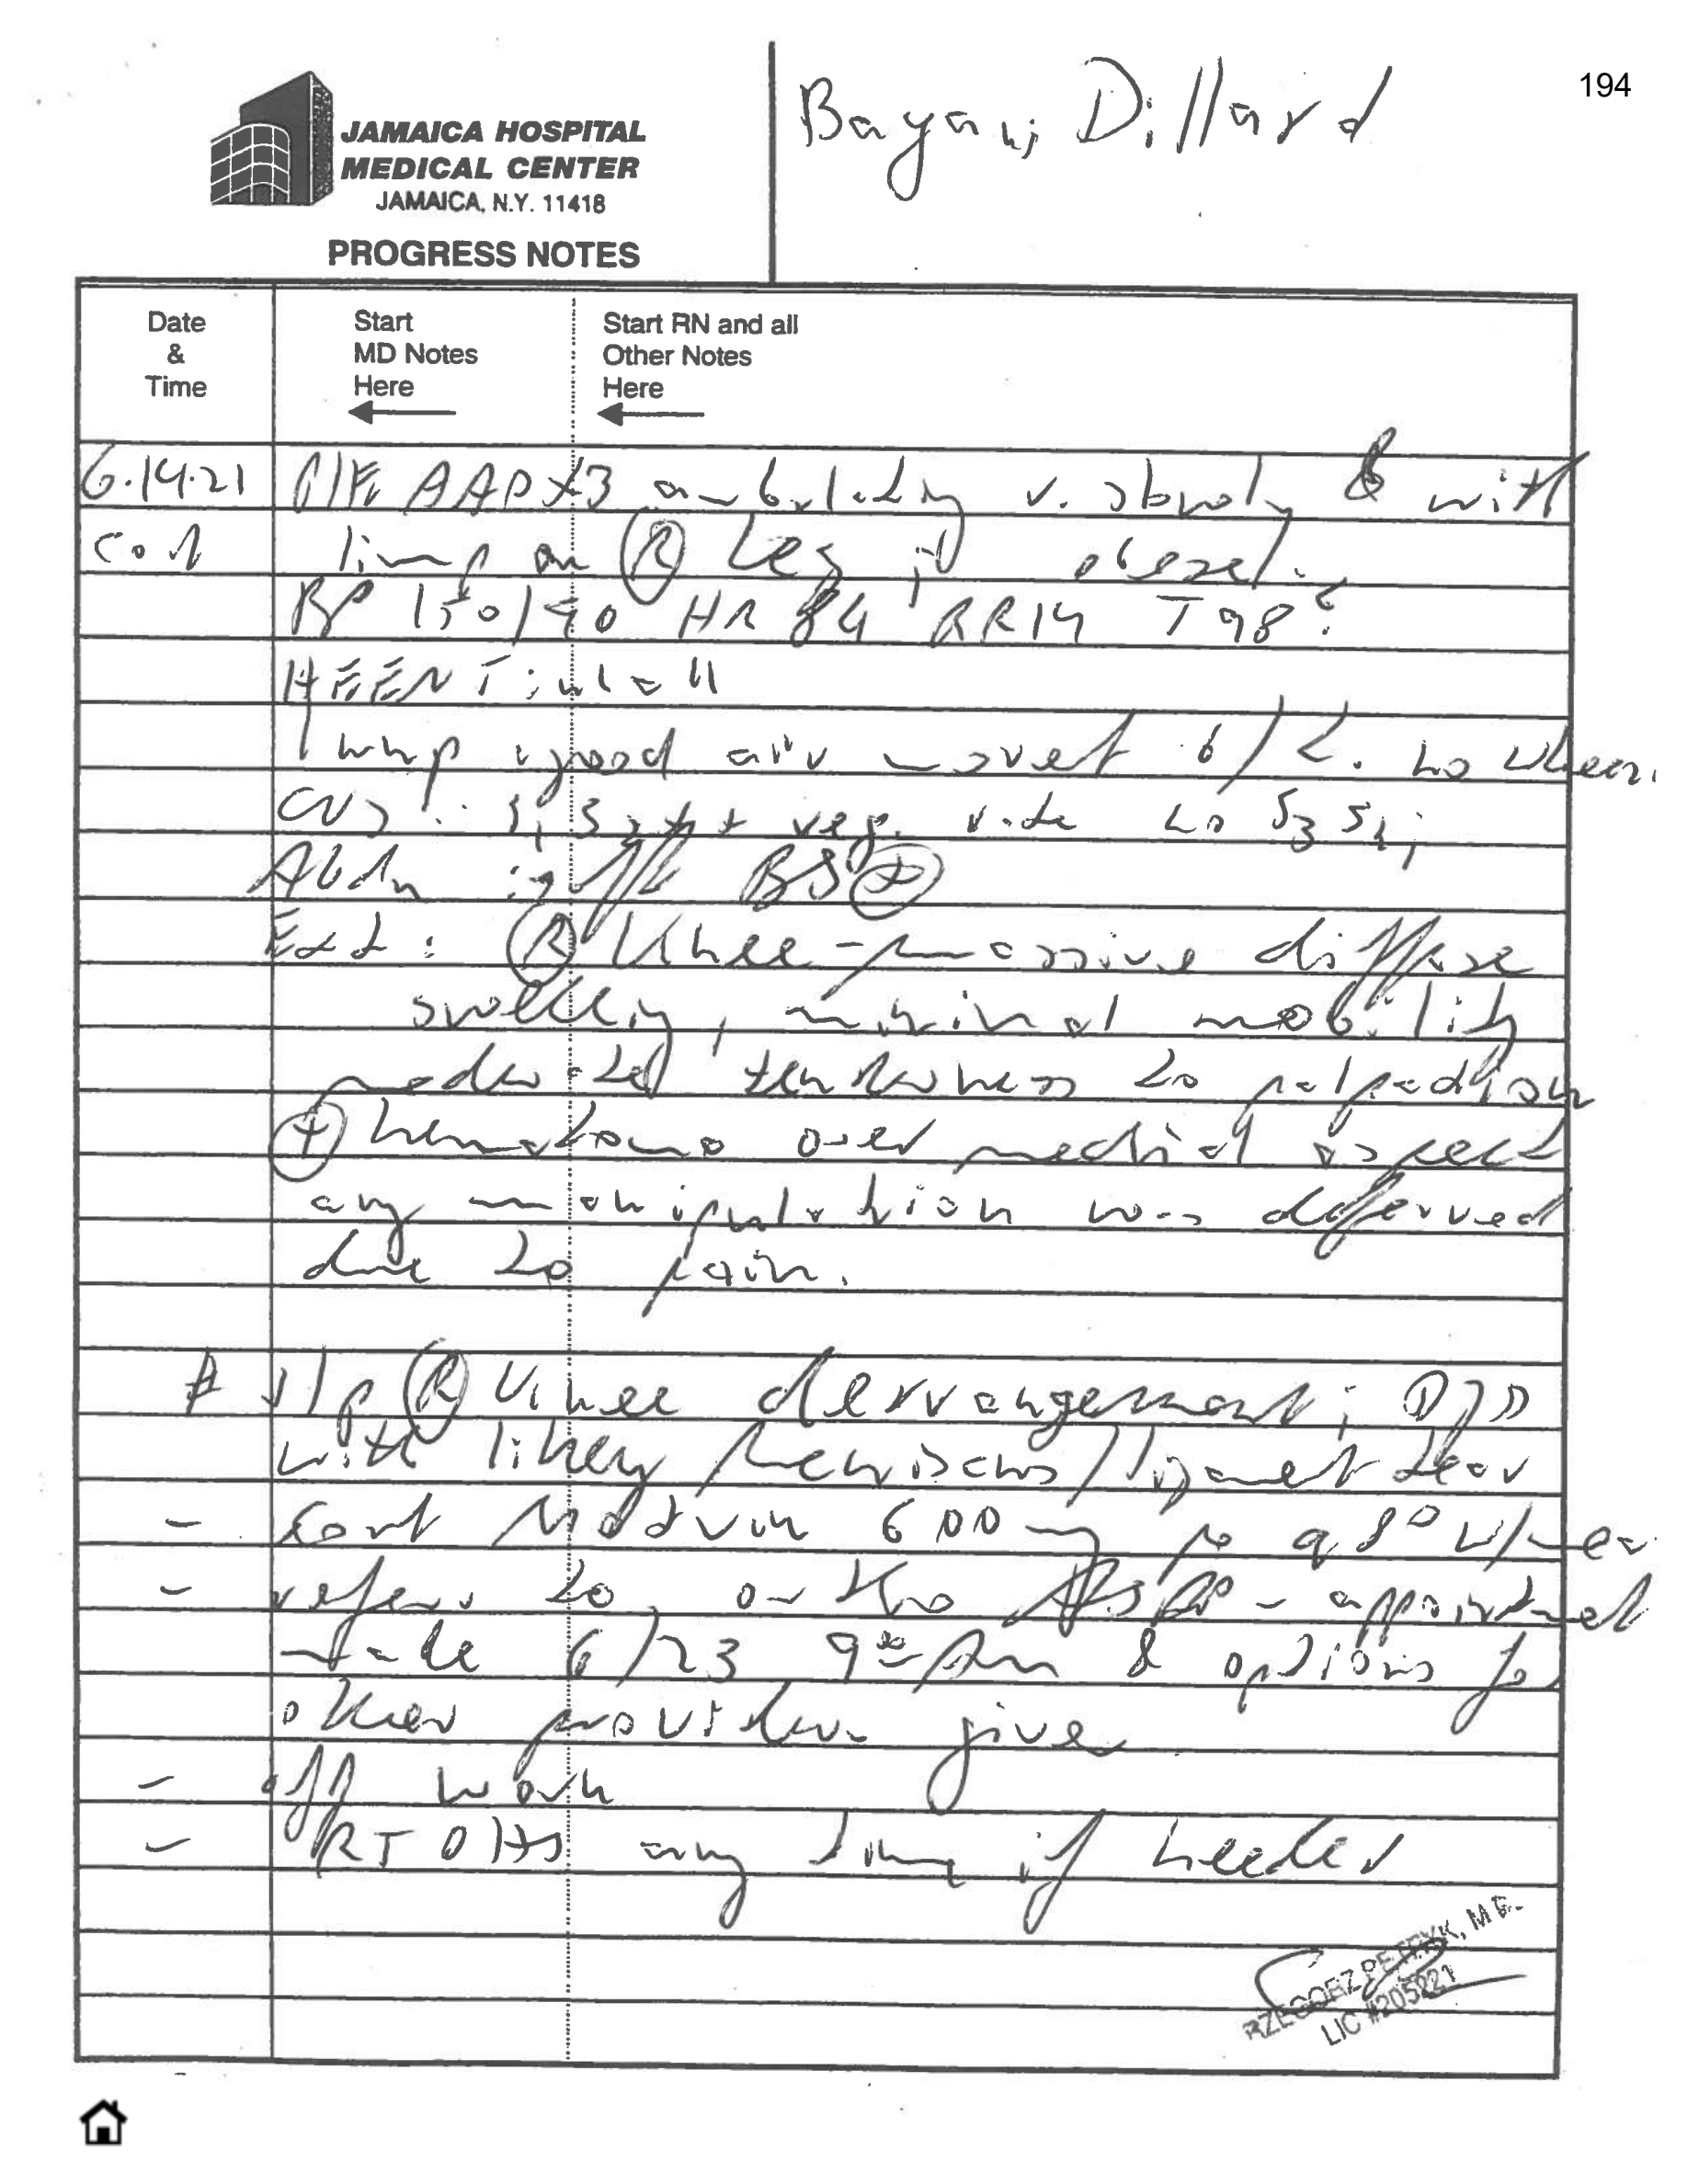 194
Bayani Dillard
JAMAICA HOSPITAL
MEDICAL CENTER
JAMAICA, N.Y. 11418
PROGRESS NOTES
Date
&
Time
Start
MD Notes
Here
Start RN and all
Other Notes
Here
6.14.21 O/E AAOx3 ambulating & with
limp on (R) Leg
BP 150/90 HR 84 RR14 T98
HEENT:
good air movet b/l. no wheez.
CVS: S1 S2 reg. rate no S3 S4;
Abdn soft BS (+)
Ext: (R) Knee - massive diffuse
swelling, minimal mobility
tenderness to palpation
(+) hematoma over medial aspect
any manipulation was deferred
due to pain.
# (R) Knee derrangement; DJD
with likey meniscus/ligamet tear
- cont Motrin 600 mg po q 8°
- refer to ortho ASAP - appointmet
6/23 9 Am & options for
other provider give
- off work
- RT OHS any time if needed
PETRYK, M.D.
LIC #205221